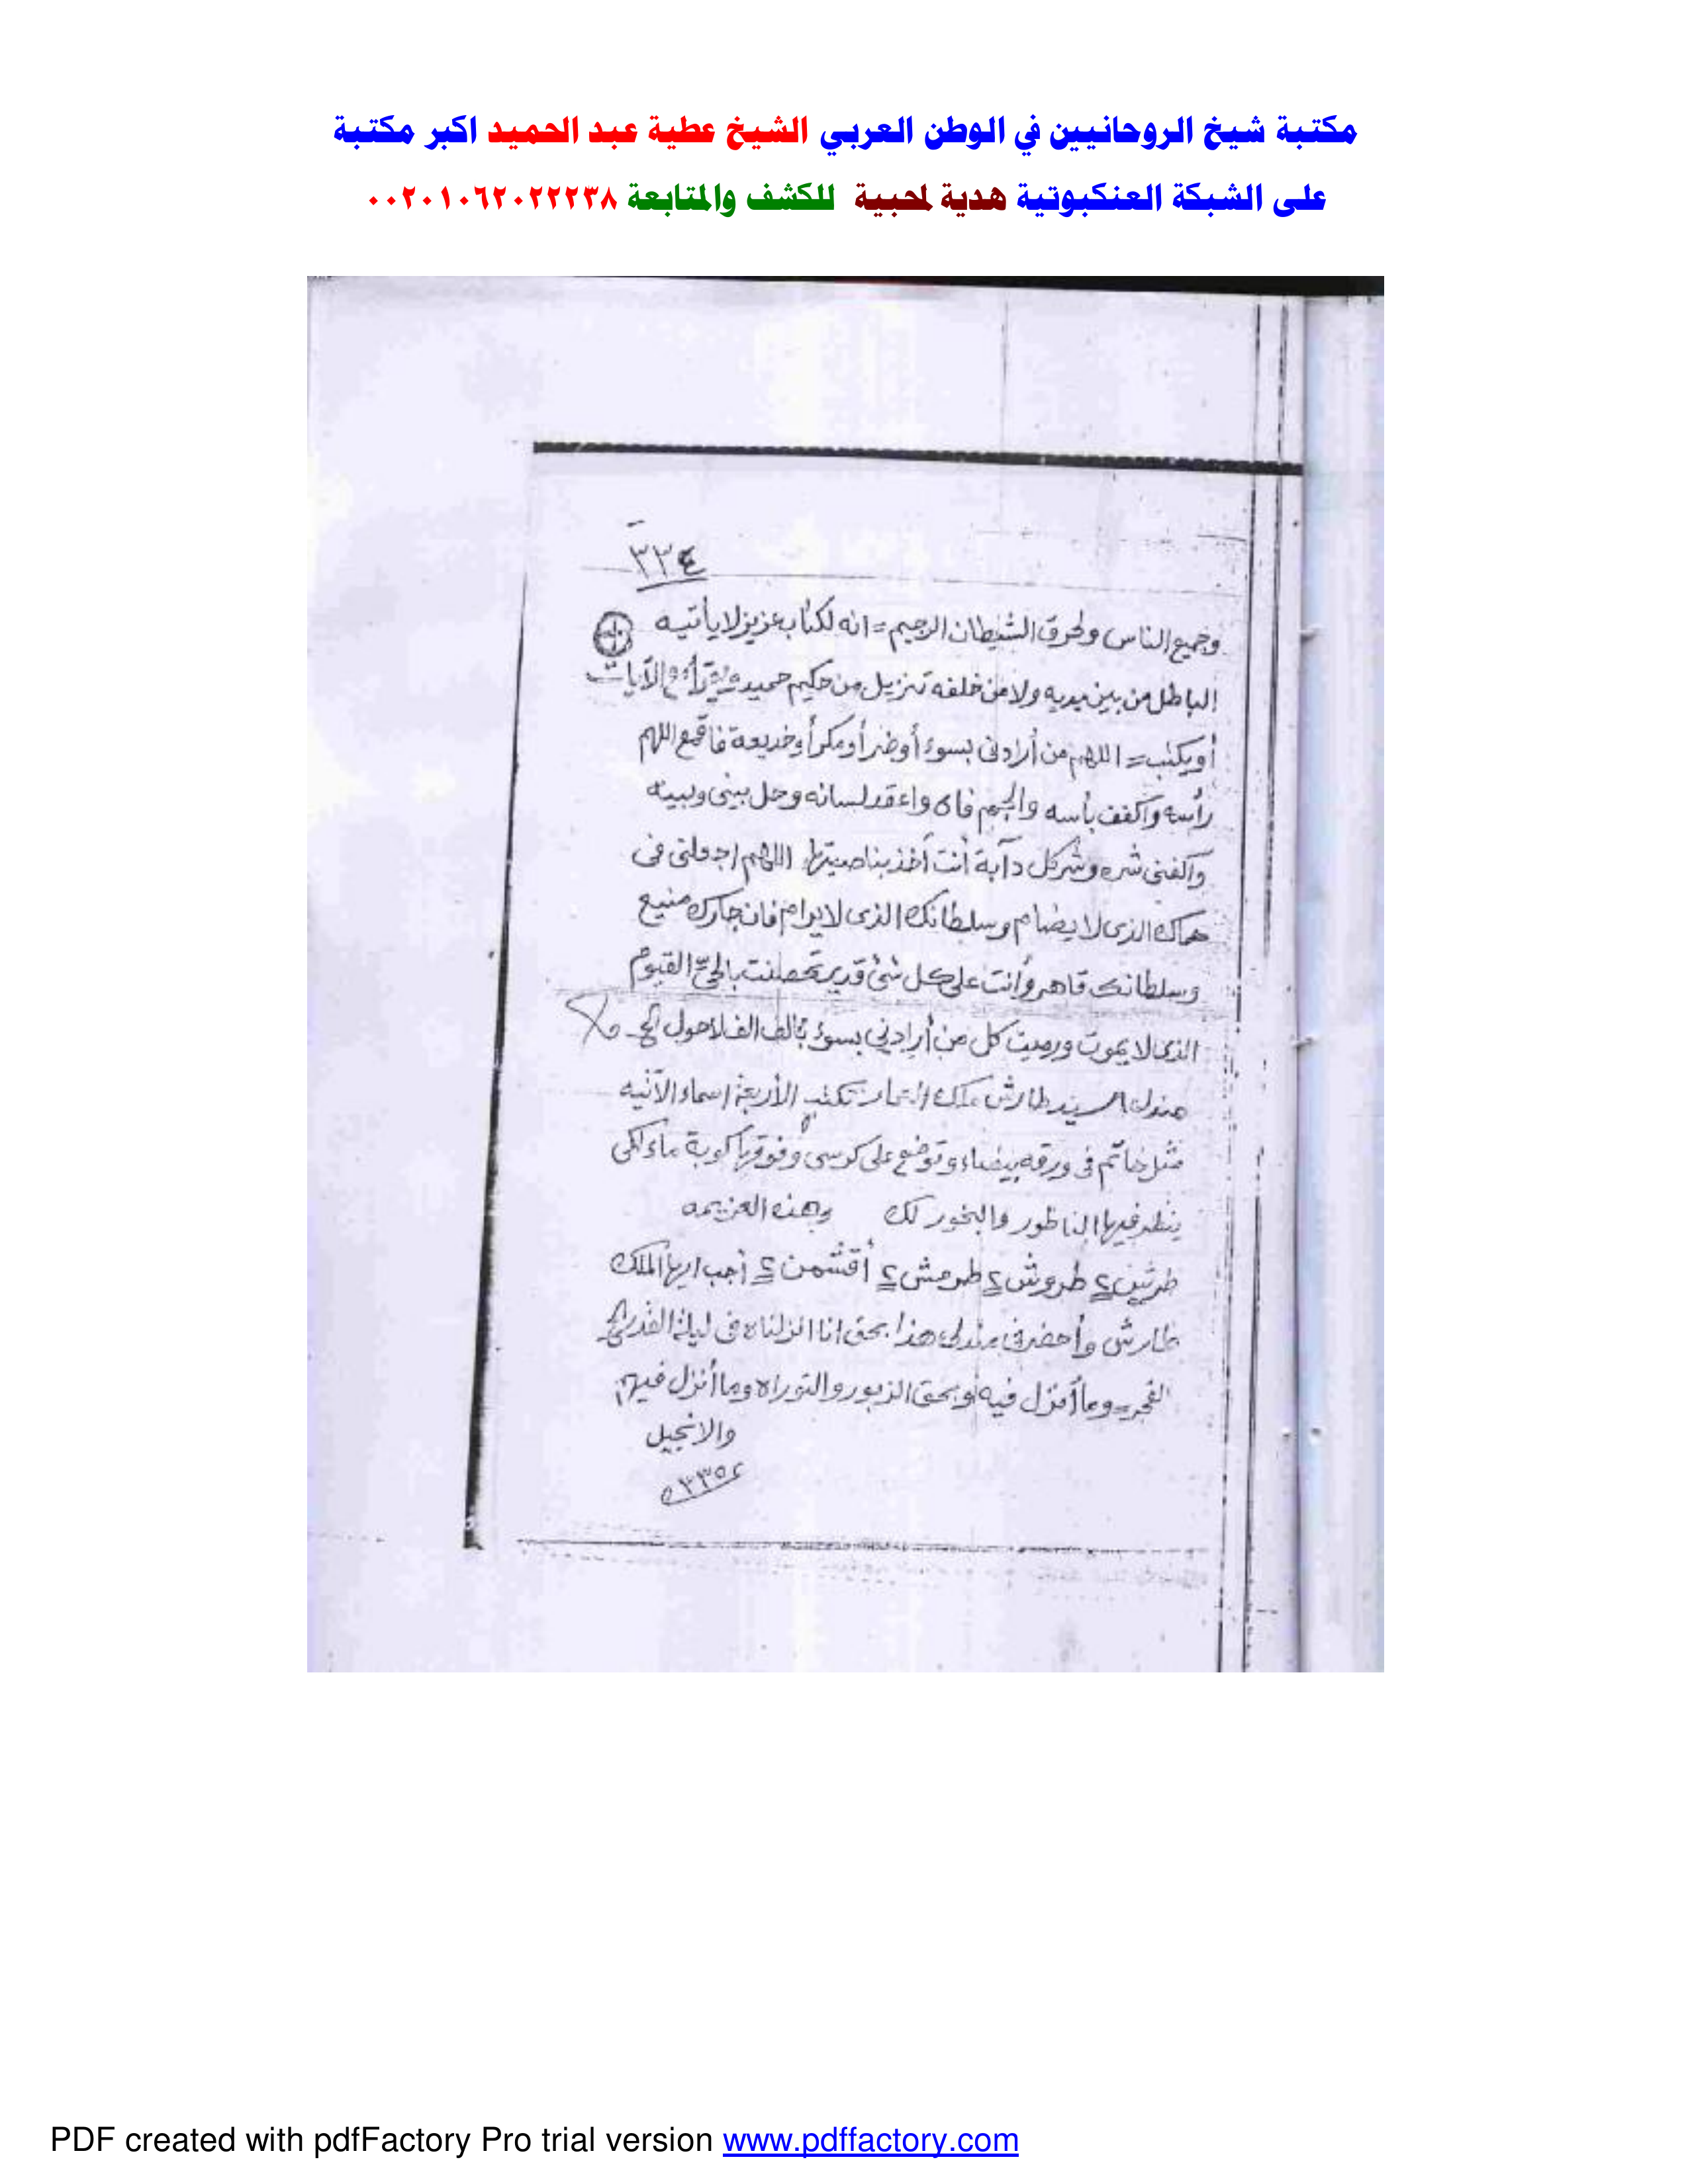 مكتبة شيخ الروحانيين في الوطن العربي الشيخ عطية عبد الحميد اكبر مكتبة
على الشبكة العنكبوتية هدية لمحبية للكشف والمتابعة ٠٠٢٠١٠٦٢٠٢٢٢٣٨
٣٣٤
وجميع الناس ولحرق الشيطان الرجيم = انه لكتاب عزيز لا يأتيه
الباطل من بين يديه ولا من خلفه تنزيل من حكيم حميد الآيات
أو يكتب = اللهم من أرادنى بسوء أو ضر أو مكر أو خديعة فاقمع اللهم
رأسه واكفف بأسه والجم فاه واعقد لسانه وحل بينى وبينه
واكفنى شره وشر كل دآبة أنت أخذ بناصيتها اللهم اجعلنى فى
حماك الذى لا يضام وسلطانك الذى لا يرام فان جارك منيع
وسلطانك قاهر وأنت على كل شئ قدير تحصنت بالحىّ القيوم
الذى لا يموت ورميت كل من أرادني بسوء بألف الف لاحول الخ
مندل السيد طارش ملك تكتب الأربعة اسماء الآتيه
مثل خاتم فى ورقه بيضاء وتوضع على كرسى وفوقها كوبة ماء لكى
ينظر فيها الناظور والبخور لك وهذه العزيمه
طرشين ٢ طروش ٢ طرمش ٢ أقشمن ٢ أجب ايها الملك
طارش وأحضر فى مندلى هذا بحق انا انزلناه فى ليلة القدر الخ
الفجر = وما أنزل فيه وبحق الزبور والتوراه وما أنزل فيهم
والانجيل
٣٣٥
PDF created with pdfFactory Pro trial version www.pdffactory.com